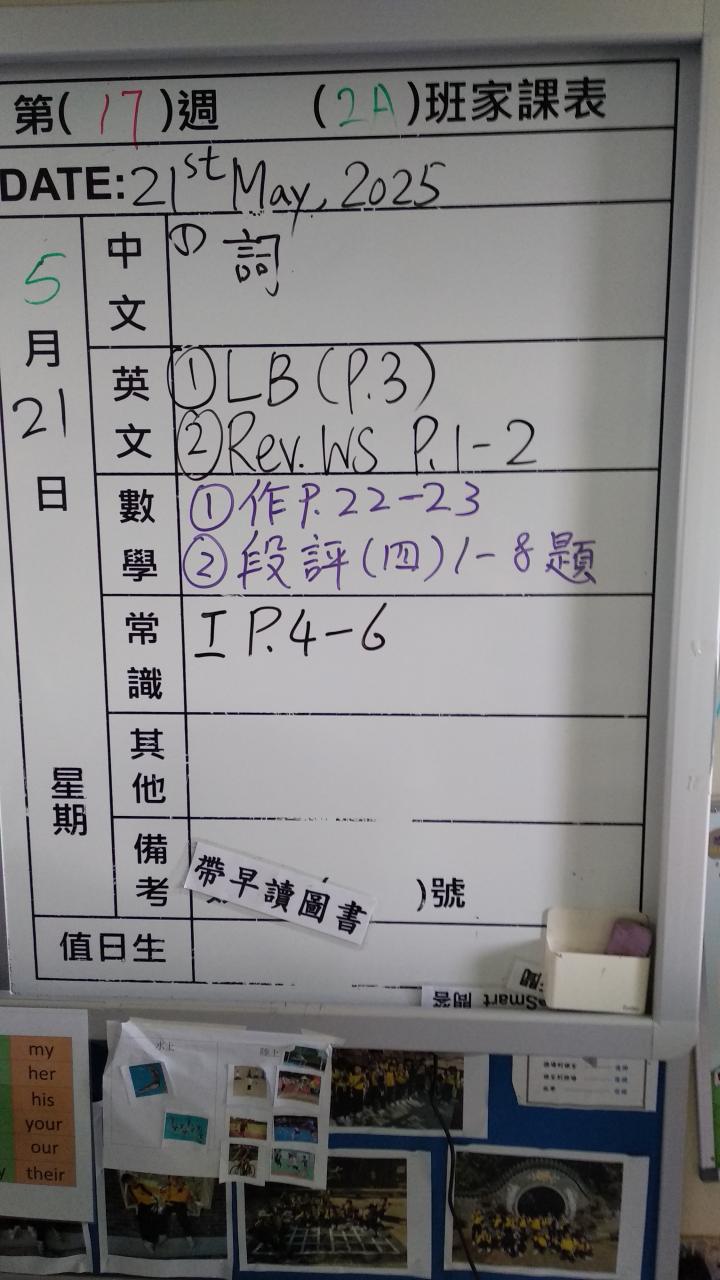 第(17)週 (2A)班家課表
DATE: 21st May, 2025
5月21日
星期
中文
① 詞
英文
① LB (P.3)
② Rev. WS P.1-2
數學
① 作P.22-23
② 段評(四)1-8題
常識
I P.4-6
其他
備考
帶早讀圖書
)號
值日生
Smart 問答
my
her
his
your
our
their
水上
陸上